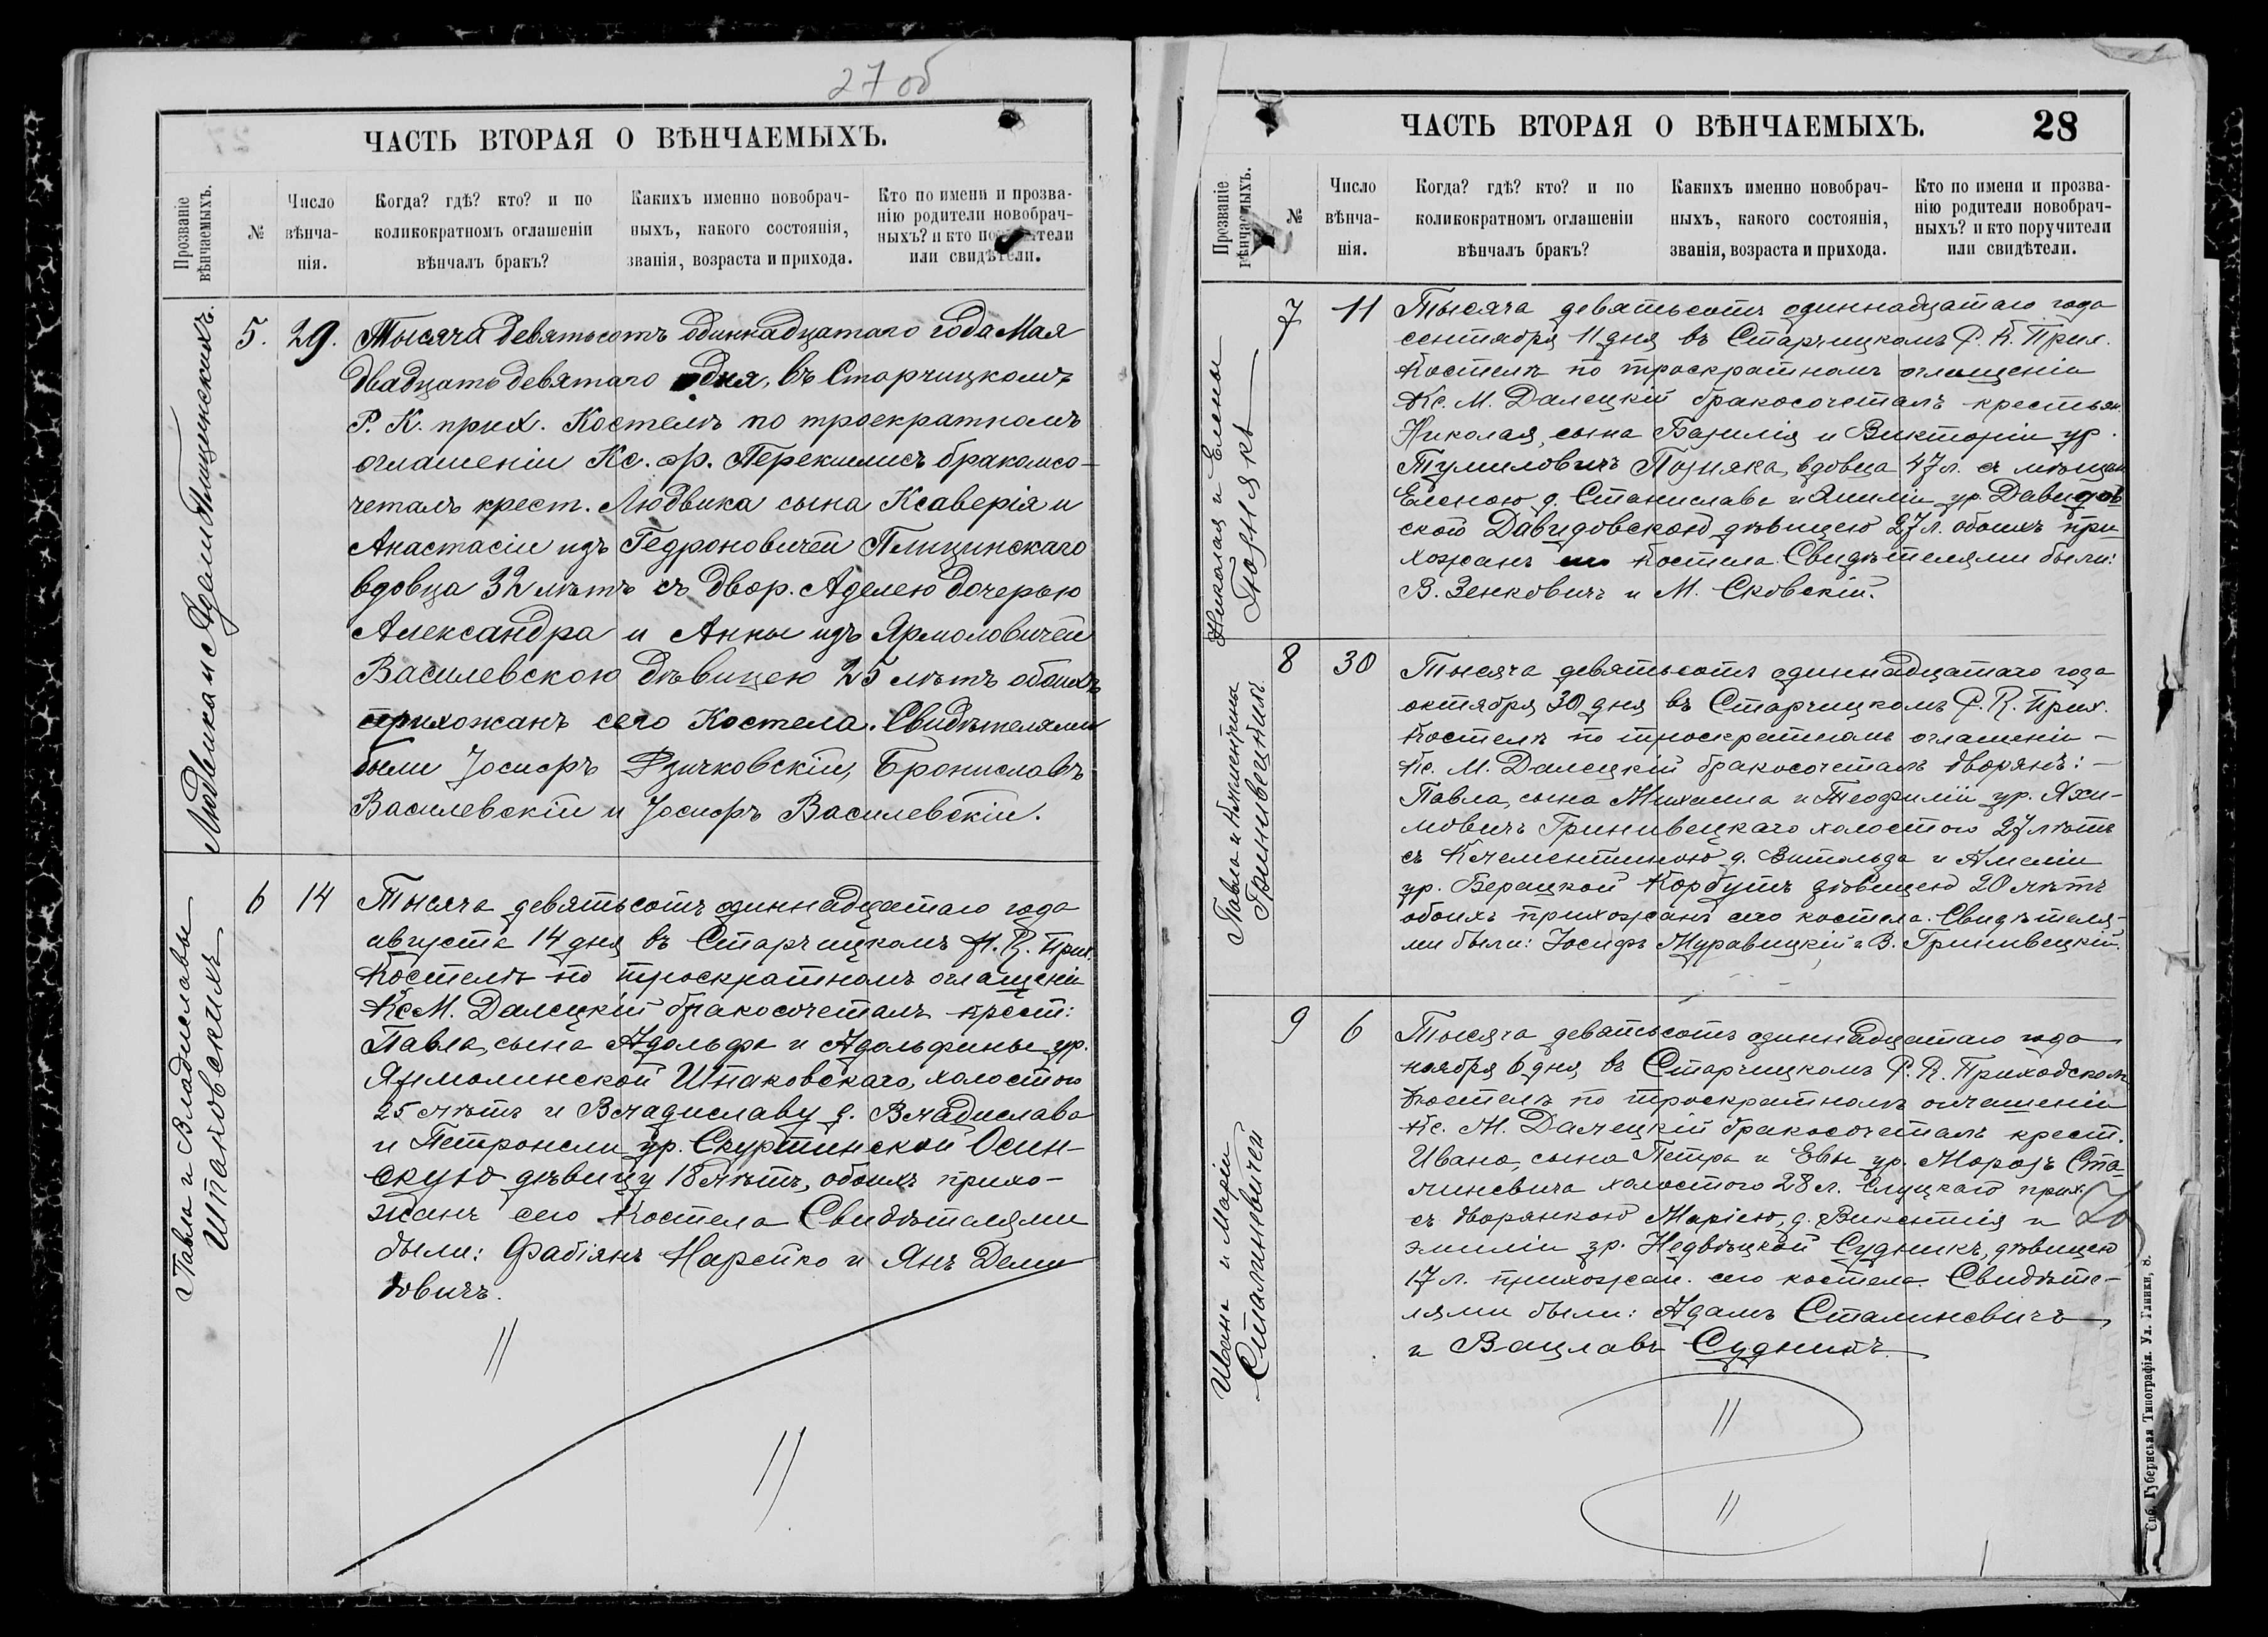 27 об
ЧАСТЬ ВТОРАЯ О ВѢНЧАЕМЫХЪ.
Прозваніе вѣнчаемыхъ.
№
Число вѣнча-нія.
Когда? гдѣ? кто? и по
коликократномъ оглашеніи
вѣнчалъ бракъ?
Какихъ именно новобрач-
ныхъ, какого состоянія,
званія, возраста и прихода.
Кто по имени и прозва-
нію родители новобрач-
ныхъ? и кто поручители
или свидѣтели.
Людвика и Адели Плищинскихъ.
5. 29. Тысяча девятьсотъ одиннадцатаго года Мая
двадцать девятаго дня, въ Старчицкомъ
Р. К. прих. Костелѣ по троекратномъ
оглашеніи Кс. Фр. Перекшлисъ бракомсо-
четалъ крест. Людвика сына Ксаверія и
Анастасіи изъ Гедроновичей Плищинскаго
вдовца 32 лѣтъ съ двор. Аделею дочерью
Александра и Анны изъ Ярмоловичей
Василевскою дѣвицею 25 лѣтъ обоихъ
прихожанъ сего Костела. Свидѣтелями
были Іосифъ Фзичковскій, Брониславъ
Василевскій и Іосифъ Василевскій.
Павла и Владиславы
Шпаковскихъ
6 14 Тысяча девятьсотъ одиннадцатаго года
августа 14 дня въ Старчицкомъ Р. К. Прих.
Костелѣ по троекратномъ оглашеніи
Кс М. Далецкій бракосочеталъ крест:
Павла, сына Адольфа и Адольфины ур.
Ярмолинской Шпаковскаго, холостого
25 лѣтъ и Владиславу д. Владислава
и Петронели ур. Скуртинской Осин-
скую дѣвицу 18 лѣтъ, обоихъ прихо-
жанъ сего Костела Свидѣтелями
были: Фабіянъ Нарейко и Янъ Деми
довичъ.
28
ЧАСТЬ ВТОРАЯ О ВѢНЧАЕМЫХЪ.
Прозваніе вѣнчаемыхъ.
№
Число вѣнча-нія.
Когда? гдѣ? кто? и по
коликократномъ оглашеніи
вѣнчалъ бракъ?
Какихъ именно новобрач-
ныхъ, какого состоянія,
званія, возраста и прихода.
Кто по имени и прозва-
нію родители новобрач-
ныхъ? и кто поручители
или свидѣтели.
Николая и Елены
Познякъ
7 11 Тысяча девятьсотъ одиннадцатаго года
сентября 11 дня въ Старчицкомъ Р. К. Прих.
Костелѣ по троекратномъ оглашеніи
Кс. М. Далецкій бракосочеталъ крестьян.
Николая, сына Базилія и Викторіи ур.
Тумиловичъ Позняка, вдовца 47 л. съ мѣщан
Еленою д. Станислава и Эмиліи ур. Давидов
ской Давидовскою дѣвицею 27 л. обоихъ при
хожанъ Костела. Свидѣтелями были:
В. Зенковичъ и М. Сковскій.
Павла и Клементины
Гринивецкихъ
8 30 Тысяча девятьсотъ одиннадцатаго года
октября 30 дня въ Старчицкомъ Р. К. Прих.
Костелѣ по троекратномъ оглашеніи —
Кс. М. Далецкій бракосочеталъ дворянъ: —
Павла, сына Михаила и Теофиліи ур. Яхи-
мовичъ Гринивецкаго холостого 27 лѣтъ
съ Клементиною д. Витольда и Амеліи
ур. Верацкой Корбутъ дѣвицею 20 лѣтъ
обоихъ прихожанъ сего костела. Свидѣтеля-
ми были: Іосифъ Муравицкій и В. Гринивецкій.
Ивана и Маріи
Сталиневичей
9 6 Тысяча девятьсотъ одиннадцатаго года
ноября 6 дня въ Старчицкомъ Р. К. Приходском
Костелѣ по троекратномъ оглашеніи
Кс. М. Далецкій бракосочеталъ крест.
Ивана, сына Петра и Евы ур. Морозъ Ста
линевича холостого 28 л. Слуцкаго прих.
съ дворянкою Маріею, д. Викентія и
Эмиліи ур. Недвѣцкой Судникъ, дѣвицею
17 л. прихожан. сего костела. Свидѣте-
лями были: Адамъ Сталиневичъ
и Вацлавъ Судникъ.
Спб. Губернская Типографія. Ул. Глинки, 8.